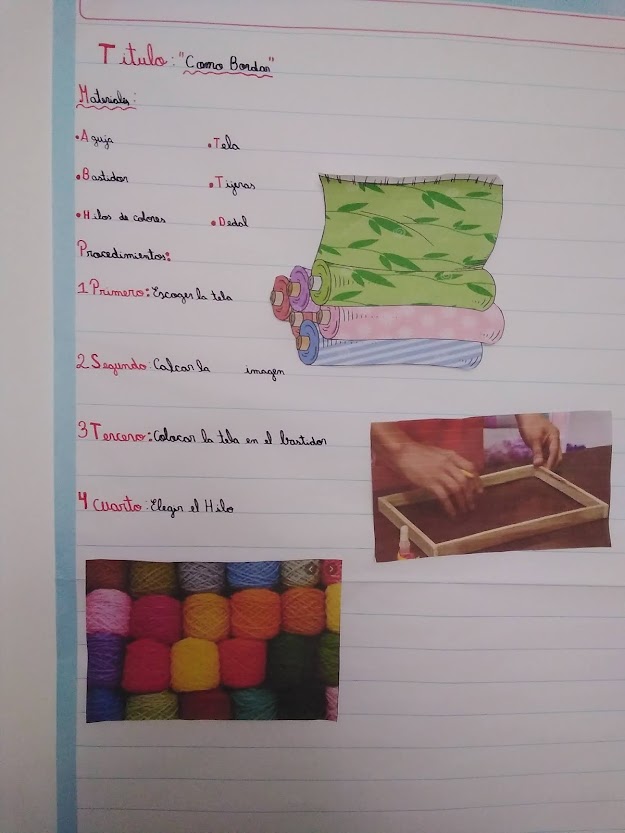 Titulo: "Como Bordar"
Materiales:
•Aguja •Tela
•Bastidor •Tijeras
•Hilos de colores •Dedal
Procedimientos:
1 Primero: Escoger la tela
2 Segundo: Calcar la imagen
3 Tercero: Colocar la tela en el bastidor
4 cuarto: Elegir el Hilo